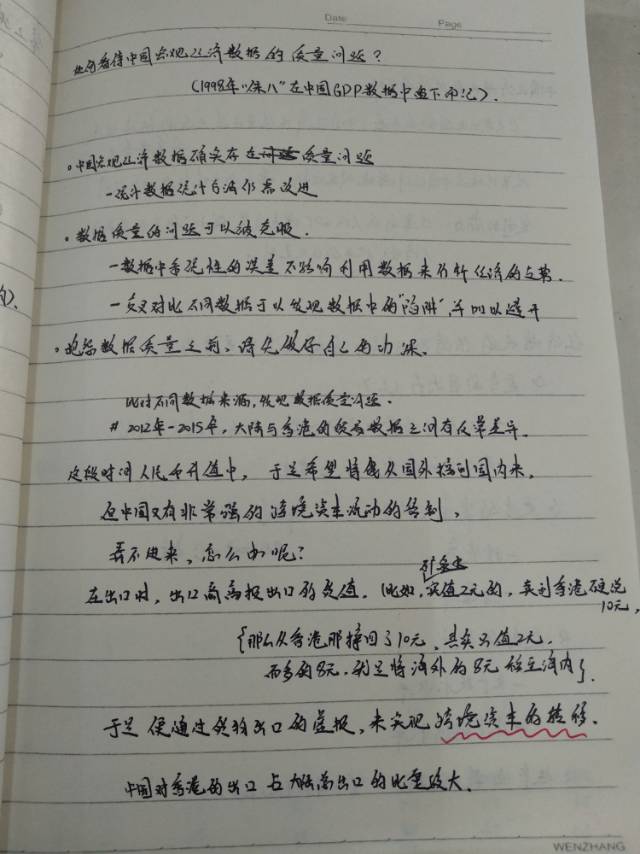 Date Page
如何看待中国宏观经济数据的质量问题?
(1998年"保八"在中国GDP数据中造下印记).
。中国宏观经济数据确实存在质量问题
-统计数据统计方法仍需改进
。数据质量的问题可以被克服.
-数据中系统性的误差不影响利用数据来分析经济的走势.
-交叉对比不同数据可以发现数据中的"陷阱",并加以避开
。抱怨数据质量之前,请先做好自己的功课.
比对不同数据来源,发现数据质量问题.
# 2012年-2015年,大陆与香港的贸易数据之间有反常差异.
这段时间人民币升值中,于是希望将钱从国外挪到国内来.
但中国又有非常强的跨境资本流动的管制,
弄不进来,怎么办呢?
在出口时,出口商高报出口的货值.(比如,实值2元的,卖到香港硬说
10元,
{那么从香港那挣回了10元,其实只值2元.
而多的8元.就是将海外的8元 海内}.
于是便通过 出口的虚报,来实现跨境资本的转移.
中国对香港的出口占大陆总出口的比重较大.
WENZHANG